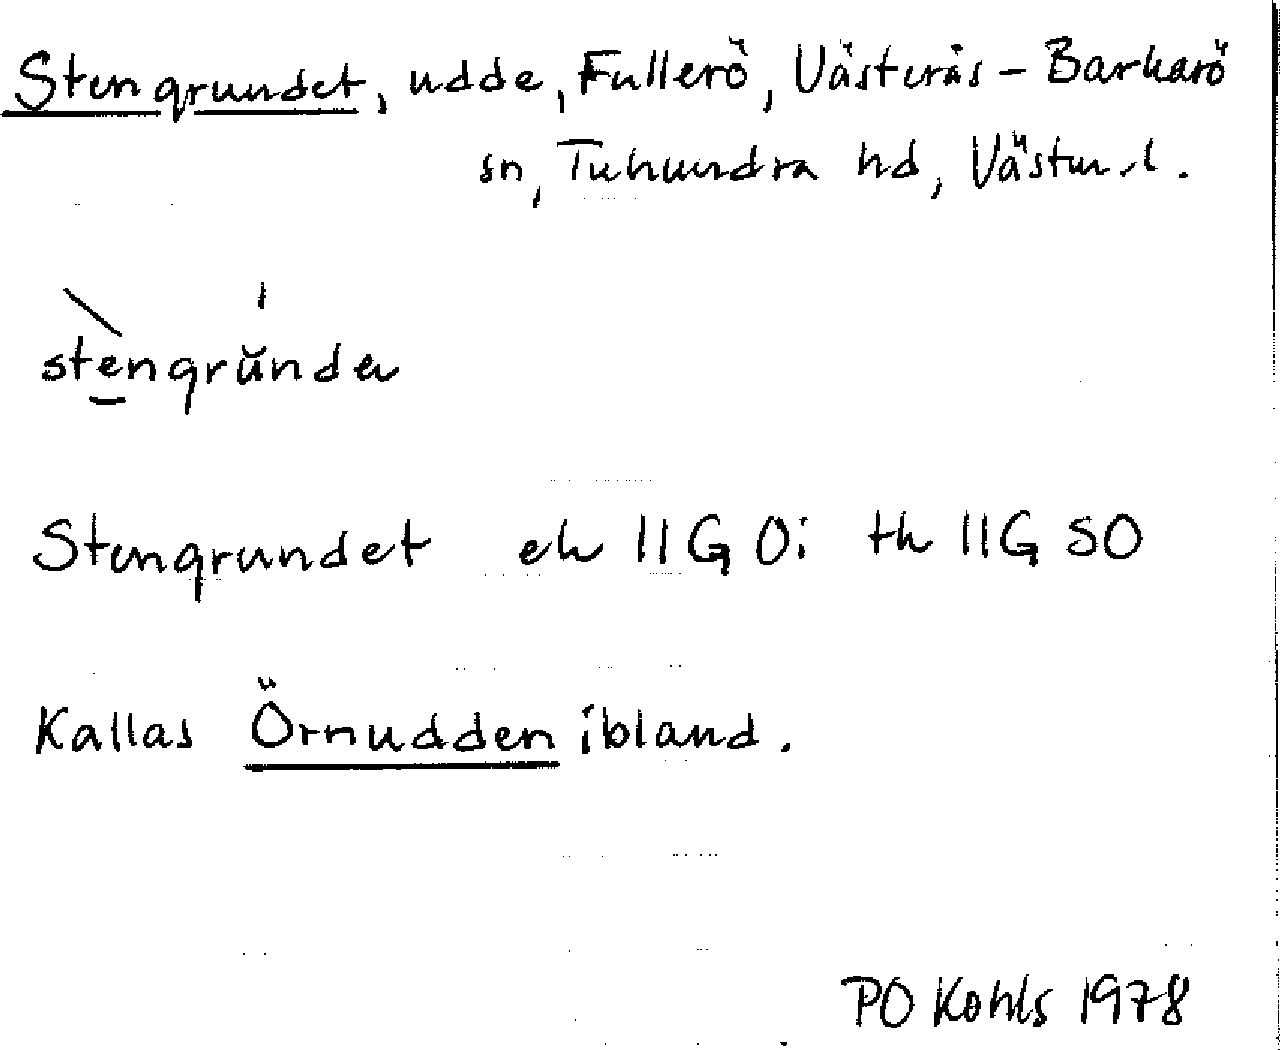 Stengrundet, udde, Fullerö, Västerås-Barkarö
sn, Tuhundra hd, Västm.l.
stengrŭndeʳ
Stengrundet ek 11G 0i tk 11G SO
Kallas Örnudden ibland.
PO Kohls 1978